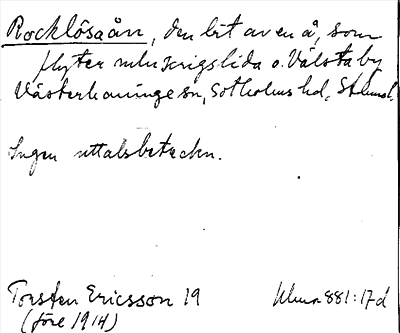 Rocklösaån, den bit av en å, som
flyter mln Krigslida o. Välsta by
Västerhaninge sn, Sotholms hd, Sthms l.
Ingen uttalsbeteckn.
Torsten Ericsson 19
(före 1914)
Ulma 881:17 d